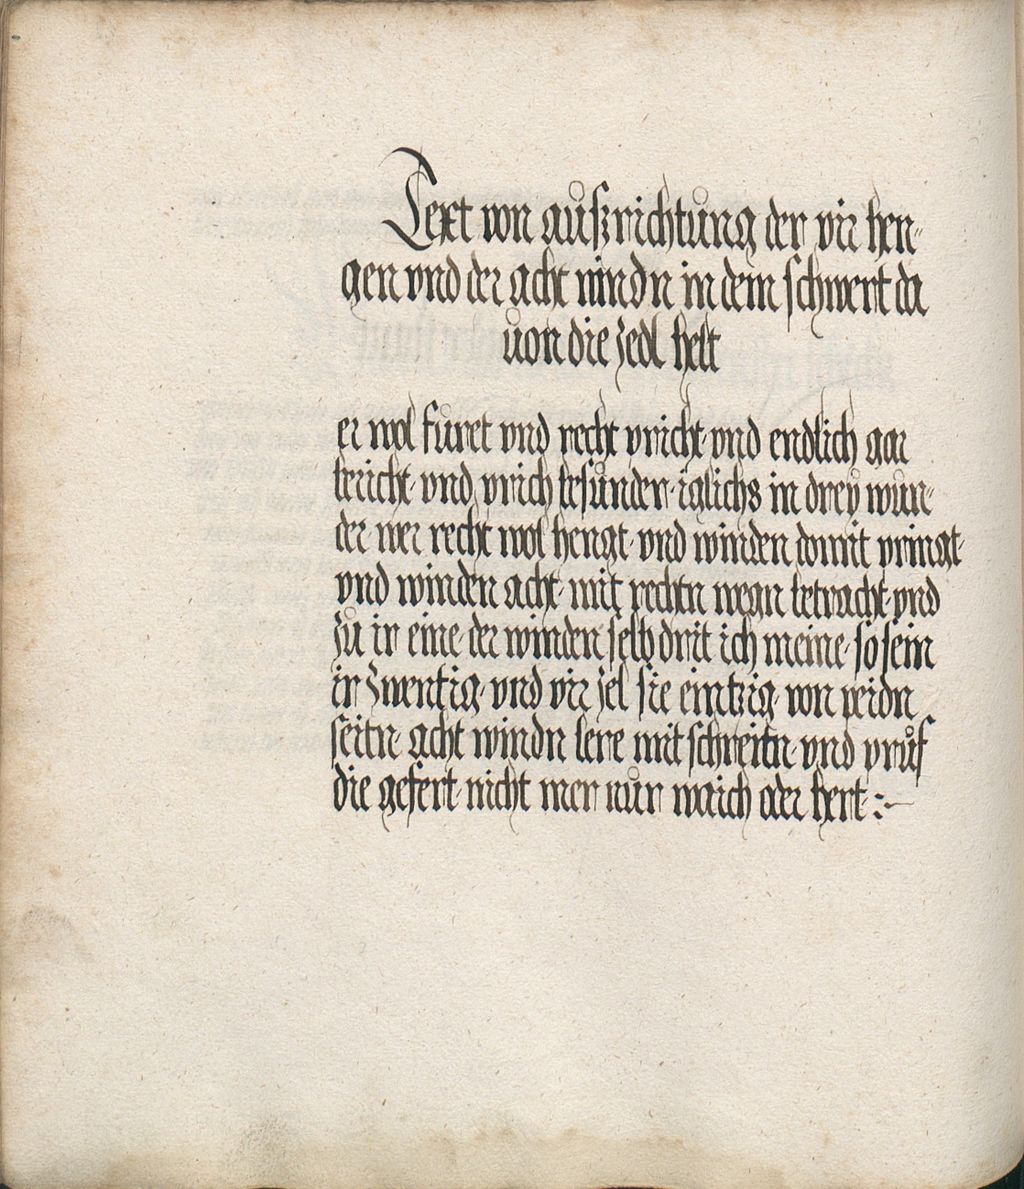 Text von außrichtung der vir hen-
gen vnd der acht windn in dem schwert da
von die zedl helt
er wol furet vnd recht pricht vnd endlich gar
bericht vnd prich besunder iglichs in drey wun-
der wer recht wol hengt vnd winden domit pringt
vnd winden acht mit rechtn wegn betracht vnd
zu ir eine der winden selb drit ich meine so sein
ir zwentig vnd vir zel sie eintzig von peidn
seitn acht windn lere mit schreitn vnd pruf
die gefert nicht mer nur waich oder hert :~